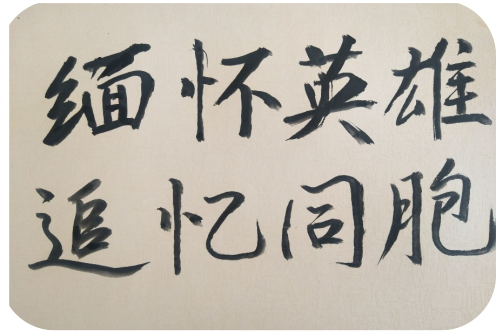 缅怀英雄
追忆同胞